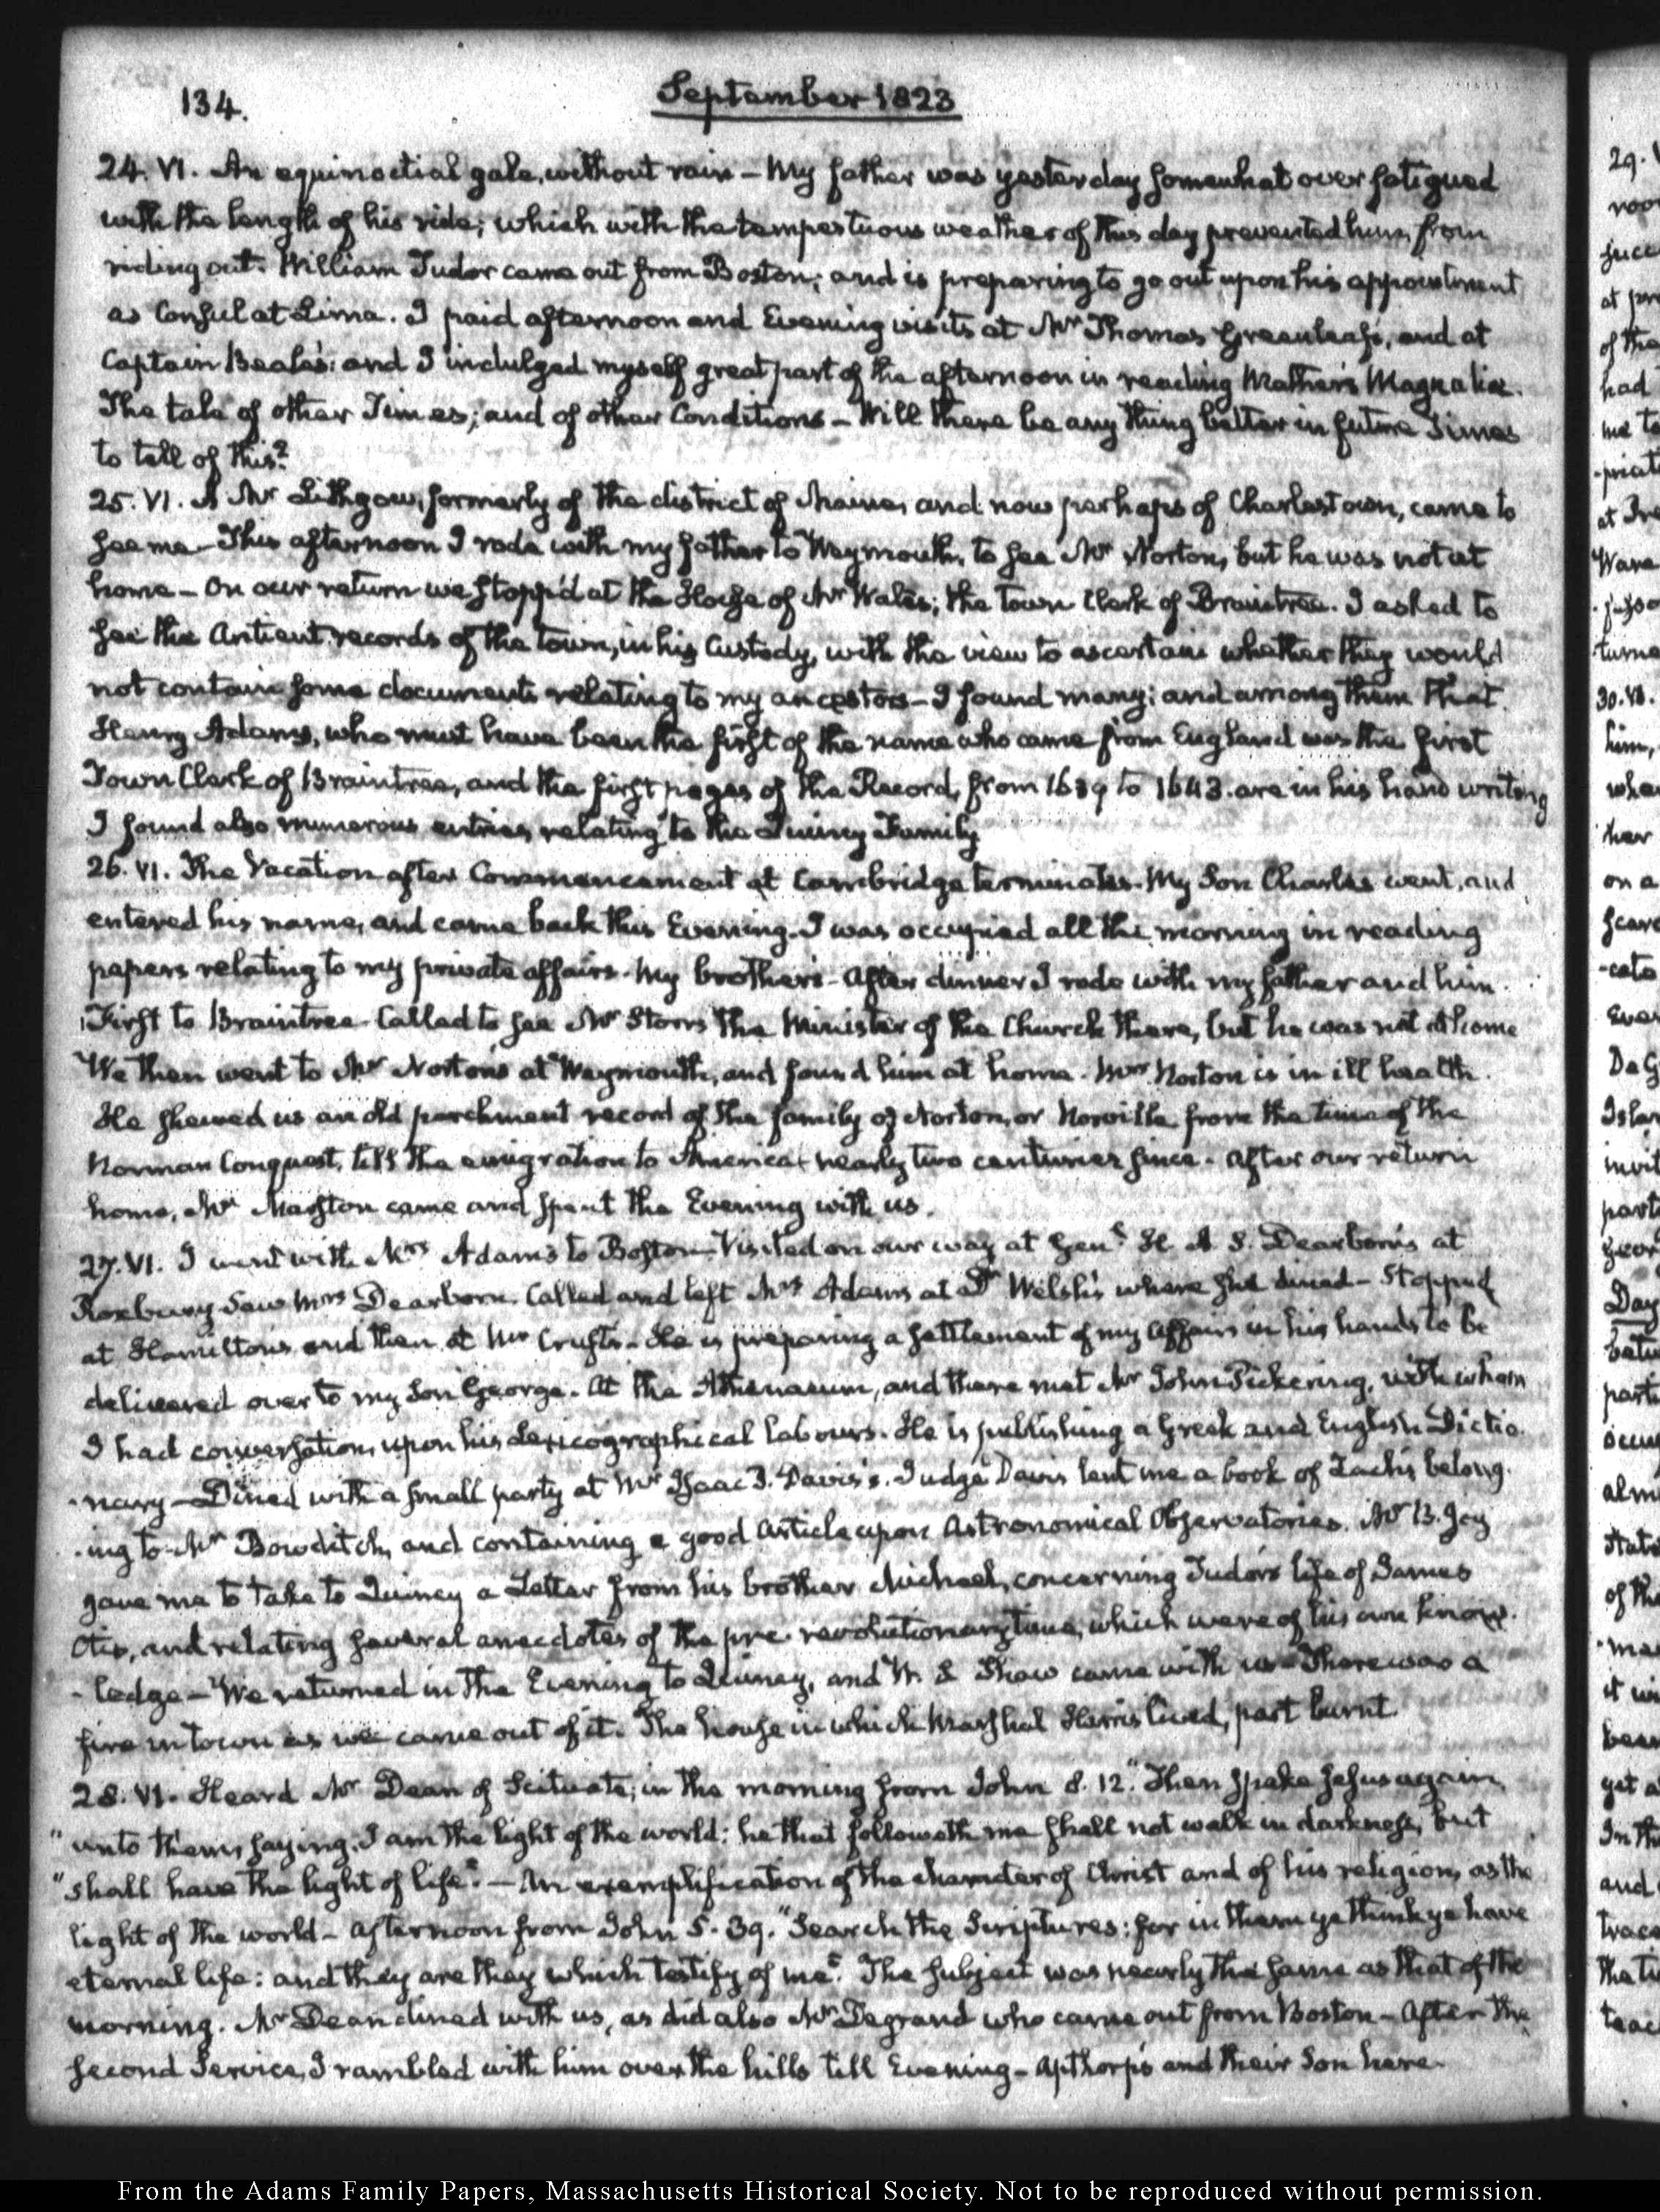 134.
September 1823
24. VI. An equinoctial gale, without rain – My father was yesterday somewhat over fatigued
with the length of his ride; which with the tempestuous weather of this day prevented him from
riding out. William Tudor came out from Boston; and is preparing to go out upon his appointment
as Consul at Lima. I paid afternoon and Evening visits at Mr Thomas Greenleaf's, and at
Captain Beale's: and I indulged myself great part of the afternoon in reading Mather's Magnalia.
The tale of other Times; and of other Conditions – Will there be any thing better in future Times
to tell of this?
25. VI. A Mr Lithgow, formerly of the district of Maine, and now perhaps of Charlestown, came to
see me – This afternoon I rode with my father to Weymouth, to see Mr Norton, but he was not at
home – On our return we stopp'd at the House of Mr Wales; the town Clerk of Braintree. I asked to
see the Antient records of the town, in his Custody, with the view to ascertain whether they would
not contain some documents relating to my ancestors – I found many: and among them that
Henry Adams, who must have been the first of the name who came from England was the first
Town Clerk of Braintree, and the first pages of the Record, from 1639 to 1643. are in his hand writing
I found also numerous entries relating to the Quincy Family
26. VI. The Vacation after Commencement at Cambridge terminates. My Son Charles went, and
entered his name, and came back this Evening. I was occupied all the morning in reading
papers relating to my private affairs. My brother's – After dinner I rode with my father and him.
First to Braintree. Called to see Mr Storrs the Minister of the Church there, but he was not at home
We then went to Mr Norton's at Weymouth, and found him at home. Mrs Norton is in ill health.
He shewed us an old parchment record of the family of Norton, or Norville from the time of the
Norman Conquest, till the emigration to America nearly two centuries since. After our return
home, Mr Marston came and spent the Evening with us.
27. VI. I went with Mrs Adams to Boston – Visited on our way at Genl. H. A. S. Dearborn's at
Roxbury Saw Mrs Dearborn. Called and left Mrs Adams at Dr Welsh's where she dined – Stopped
at Hamilton's and then at Mr Cruft's – He is preparing a settlement of my affairs in his hands to be
delivered over to my Son George. At the Athenaeum, and there met Mr John Pickering, with whom
I had conversation upon his lexicographical labours. He is publishing a Greek and English Dictio-
-nary – Dined with a small party at Mr Isaac P. Davis's. Judge Davis lent me a book of Zach's belong-
-ing to Mr Bowditch, and containing a good Article upon Astronomical Observatories. Mr B. Joy
gave me to take to Quincy a Letter from his brother Michael, concerning Tudor's life of James
Otis, and relating several anecdotes of the pre-revolutionary time, which were of his own know-
-ledge – We returned in the Evening to Quincy, and W. S. Shaw came with us – There was a
fire in town as we came out of it. The house in which Marshal Harris lived, part burnt.
28. VI. Heard Mr Dean of Scituate; in the morning from John 8. 12. "Then spake Jesus again
"unto them, saying. I am the light of the world: he that followeth me shall not walk in darkness, but
"shall have the light of life." – An exemplification of the character of Christ and of his religion, as the
light of the world – Afternoon from John 5. 39. "Search the Scriptures: for in them ye think ye have
eternal life: and they are they which testify of me." The subject was nearly the same as that of the
morning. Mr Dean dined with us, as did also Mr Degrand who came out from Boston – After the
second Service, I rambled with him over the hills till Evening – Apthorp's and their Son here.
From the Adams Family Papers, Massachusetts Historical Society. Not to be reproduced without permission.